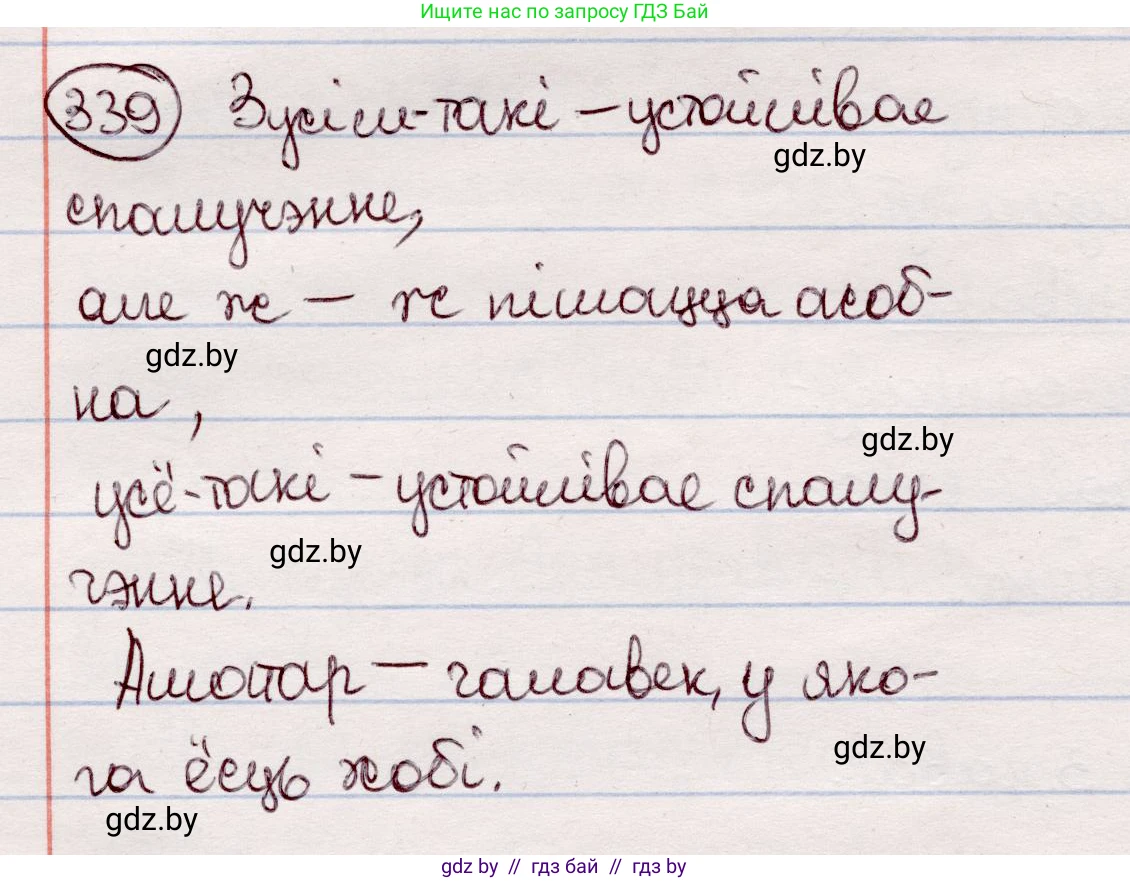 Ищите нас по запросу ГДЗ Бай
339 Зусім-такі – устойлівае
gdz.by
спалучэнне,
але ж – ж пішацца асоб-
gdz.by
на,
gdz.by
усё-такі – устойлівае спалу-
gdz.by
чэнне.
Аматар – чалавек, у яко-
gdz.by
га ёсць хобі.
gdz.by
gdz by // гдз бай // гдз by